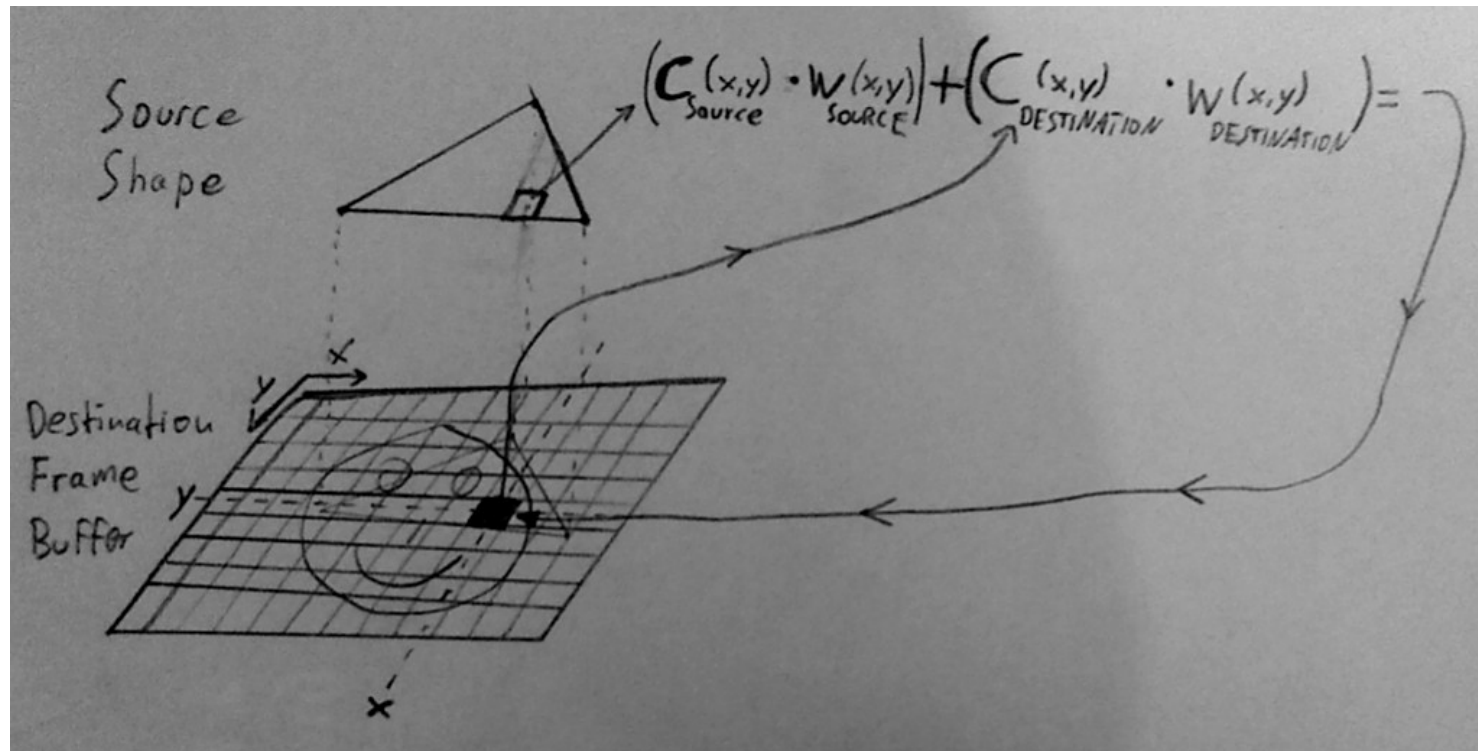 Source
Shape
(C(x,y) Source · W(x,y) SOURCE) + (C(x,y) DESTINATION · W(x,y) DESTINATION) =
x
y
Destination
Frame
Buffer
y
x